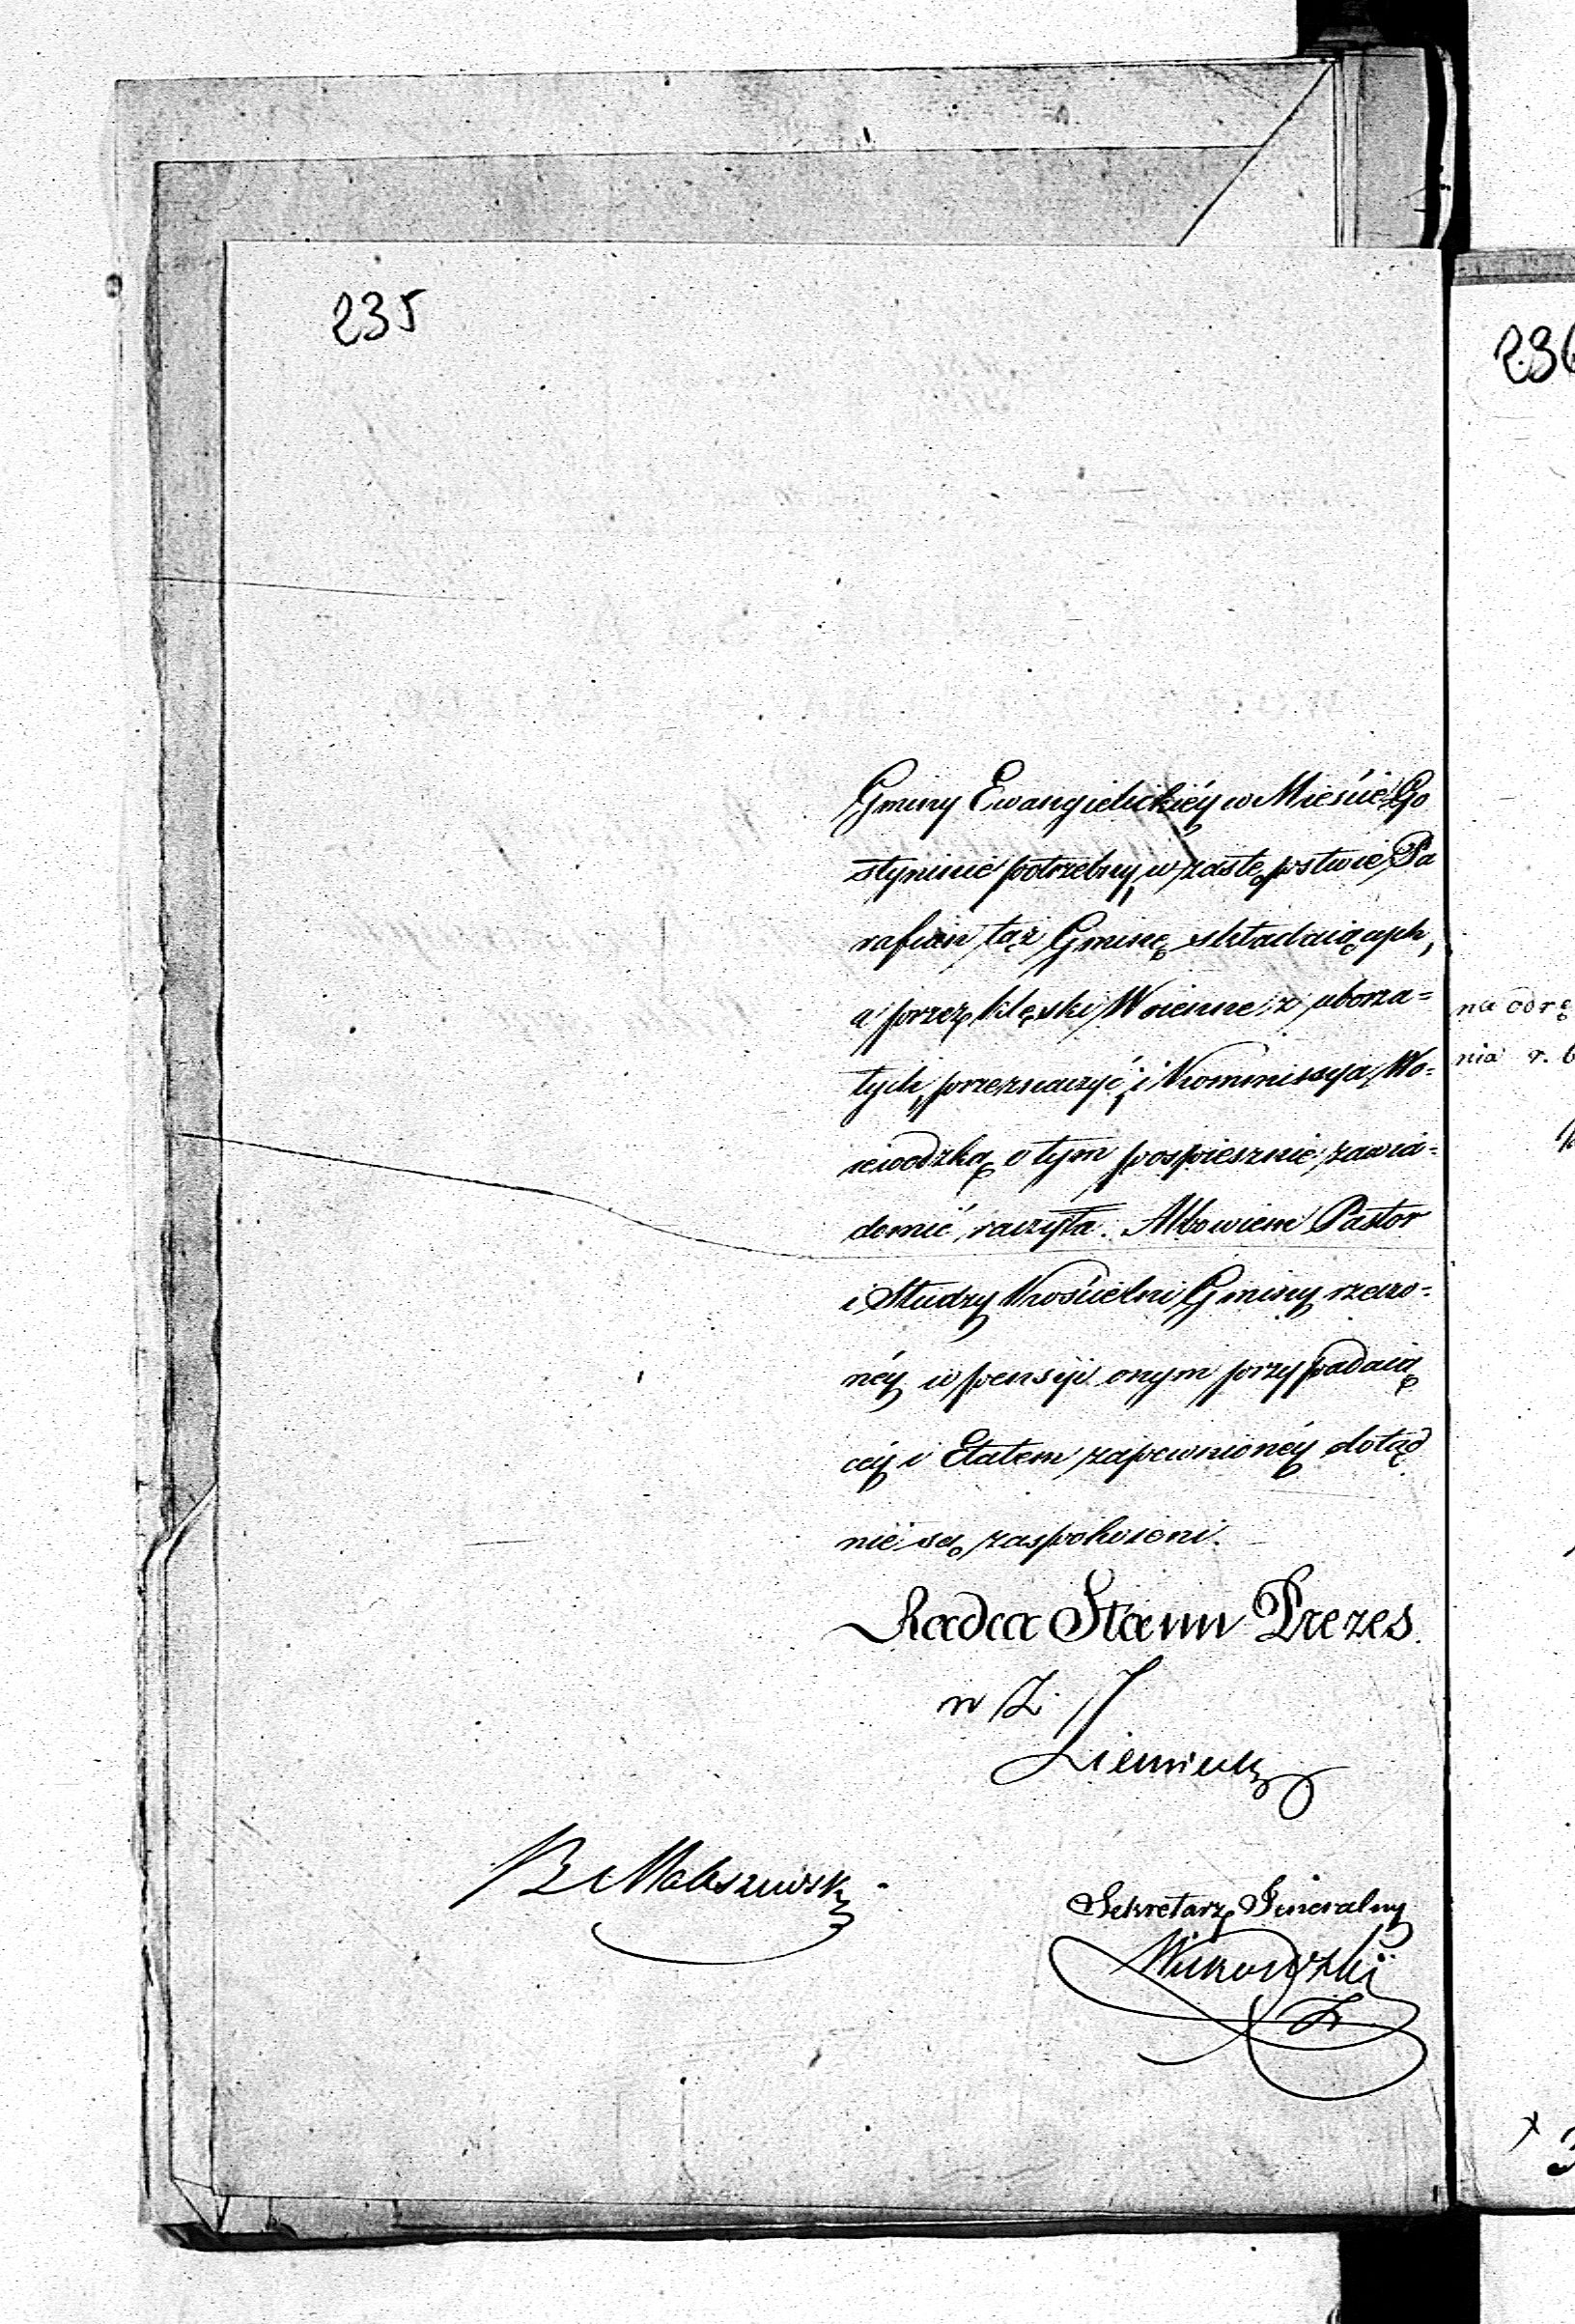 235
Gminy Ewangielickiéy w Mieście Go
styninie potrzebny, w zastępstwie Pa
rafian tąż Gminę składaiących,
a przez klęski Woienne zuboża=
łych, przeznaczyć, i Kommissyą Wo=
iewodzką o tym pospiesznie zawia=
domić raczyła. Albowiem Pastor
i Słudzy Kościelni Gminy rzeczo=
néy w pensyi onym przypadaią
céy i Etatem zapewnionéy dotąd
nie są zaspokoieni.
Radca Stanu Prezes
w Z.
Sekretarz Generalny
236
na odrę
nia r.